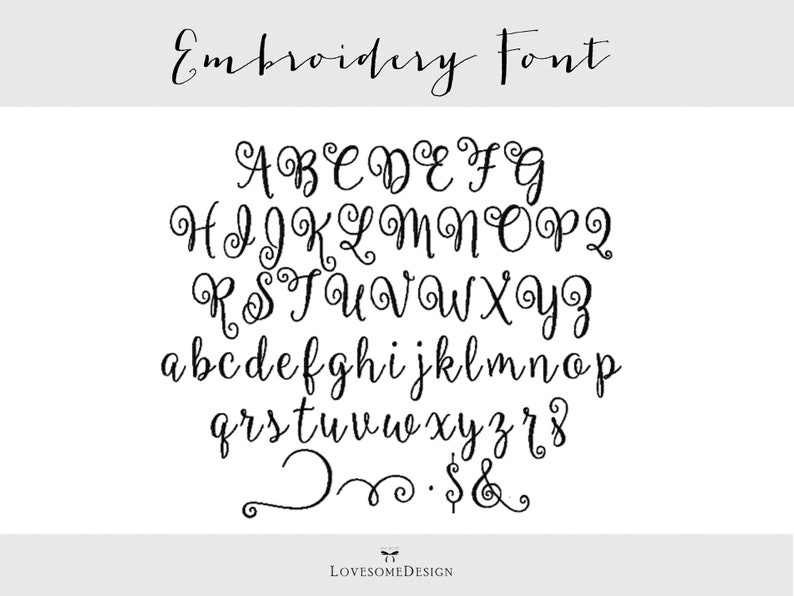 Embroidery Font
ABCDEFG
HIJKLMNOPQ
RSTUVWXYZ
abcdefghijklmnop
qrstuvwxyzrs
. $&
LOVESOMEDESIGN